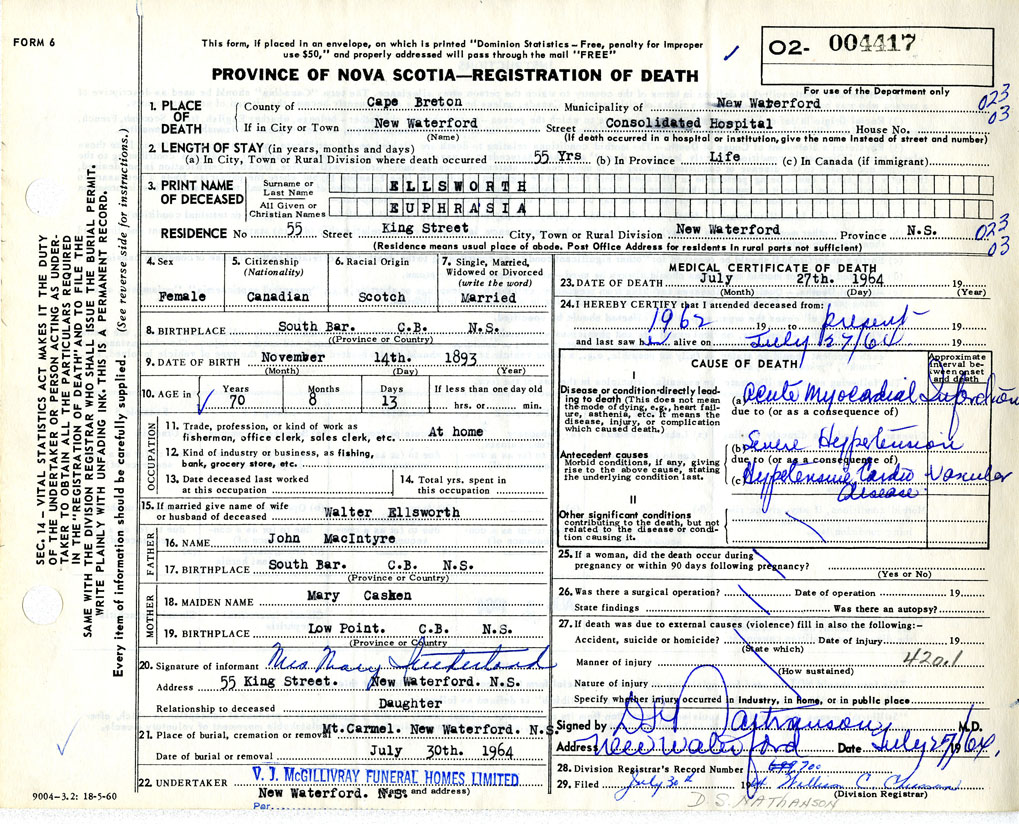 FORM 6
This form, if placed in an envelope, on which is printed "Dominion Statistics – Free, penalty for improper
use $50," and properly addressed will pass through the mail "FREE"
O2- 004417
For use of the Department only
PROVINCE OF NOVA SCOTIA—REGISTRATION OF DEATH
1. PLACE OF DEATH
County of Cape Breton Municipality of New Waterford
If in City or Town New Waterford Street Consolidated Hospital House No.
(Name) (If death occurred in a hospital or institution, give the name instead of street and number)
023
03
2. LENGTH OF STAY (in years, months and days)
(a) In City, Town or Rural Division where death occurred 55 Yrs (b) In Province Life (c) In Canada (if immigrant)
3. PRINT NAME OF DECEASED
Surname or Last Name ELLSWORTH
All Given or Christian Names EUPHRASIA
RESIDENCE No 55 Street King Street City, Town or Rural Division New Waterford Province N.S.
(Residence means usual place of abode. Post Office Address for residents in rural parts not sufficient)
023
03
4. Sex Female
5. Citizenship (Nationality) Canadian
6. Racial Origin Scotch
7. Single, Married, Widowed or Divorced (write the word) Married
8. BIRTHPLACE South Bar. C.B. N.S.
((Province or Country)
9. DATE OF BIRTH November 14th. 1893
(Month) (Day) (Year)
10. AGE in Years 70 Months 8 Days 13 If less than one day old hrs. or min.
OCCUPATION
11. Trade, profession, or kind of work as fisherman, office clerk, sales clerk, etc. At home
12. Kind of industry or business, as fishing, bank, grocery store, etc.
13. Date deceased last worked at this occupation
14. Total yrs. spent in this occupation
15. If married give name of wife or husband of deceased Walter Ellsworth
FATHER
16. NAME John MacIntyre
17. BIRTHPLACE South Bar. C.B. N.S.
(Province or Country)
MOTHER
18. MAIDEN NAME Mary Casken
19. BIRTHPLACE Low Point. C.B. N.S.
(Province or Country)
20. Signature of informant Mrs Mary Sutherland
Address 55 King Street. New Waterford. N.S.
Relationship to deceased Daughter
21. Place of burial, cremation or removal Mt.Carmel. New Waterford. N.S.
Date of burial or removal July 30th. 1964
22. UNDERTAKER V. J. McGILLIVRAY FUNERAL HOMES LIMITED
New Waterford. N.S. (Name and address)
Per
MEDICAL CERTIFICATE OF DEATH
23. DATE OF DEATH July 27th. 1964 19
(Month) (Day) (Year)
24. I HEREBY CERTIFY that I attended deceased from:
1962 19 to present 19
and last saw her alive on July 27/64 19
CAUSE OF DEATH
Approximate interval between onset and death
I
Disease or condition directly leading to death (This does not mean the mode of dying, e.g., heart failure, asthenia, etc. It means the disease, injury, or complication which caused death.)
(a) Acute Myocadial Infarction
due to (or as a consequence of)
(b) Severe Hypertension
due to (or as a consequence of)
Antecedent causes
Morbid conditions, if any, giving rise to the above cause, stating the underlying condition last.
(c) Hypertensive Cardio Vascular disease
II
Other significant conditions
contributing to the death, but not related to the disease or condition causing it.
25. If a woman, did the death occur during
pregnancy or within 90 days following pregnancy?
(Yes or No)
26. Was there a surgical operation? Date of operation 19
State findings Was there an autopsy?
27. If death was due to external causes (violence) fill in also the following:–
Accident, suicide or homicide? Date of injury 19
(State which)
Manner of injury 420.1
(How sustained)
Nature of injury
Specify whether injury occurred in industry, in home, or in public place
Signed by M.D.
Address New Waterford Date July 27/64 19
28. Division Registrar's Record Number 700
29. Filed July 30th 19
(Division Registrar)
D S NATHANSON
SEC. 14 – VITAL STATISTICS ACT MAKES IT THE DUTY
OF THE UNDERTAKER OR PERSON ACTING AS UNDER-
TAKER TO OBTAIN ALL THE PARTICULARS REQUIRED
IN THE "REGISTRATION OF DEATH" AND TO FILE THE
SAME WITH THE DIVISION REGISTRAR WHO SHALL ISSUE THE BURIAL PERMIT.
WRITE PLAINLY WITH UNFADING INK. THIS IS A PERMANENT RECORD.
Every item of information should be carefully supplied. (See reverse side for instructions.)
9004-3.2: 18-5-60